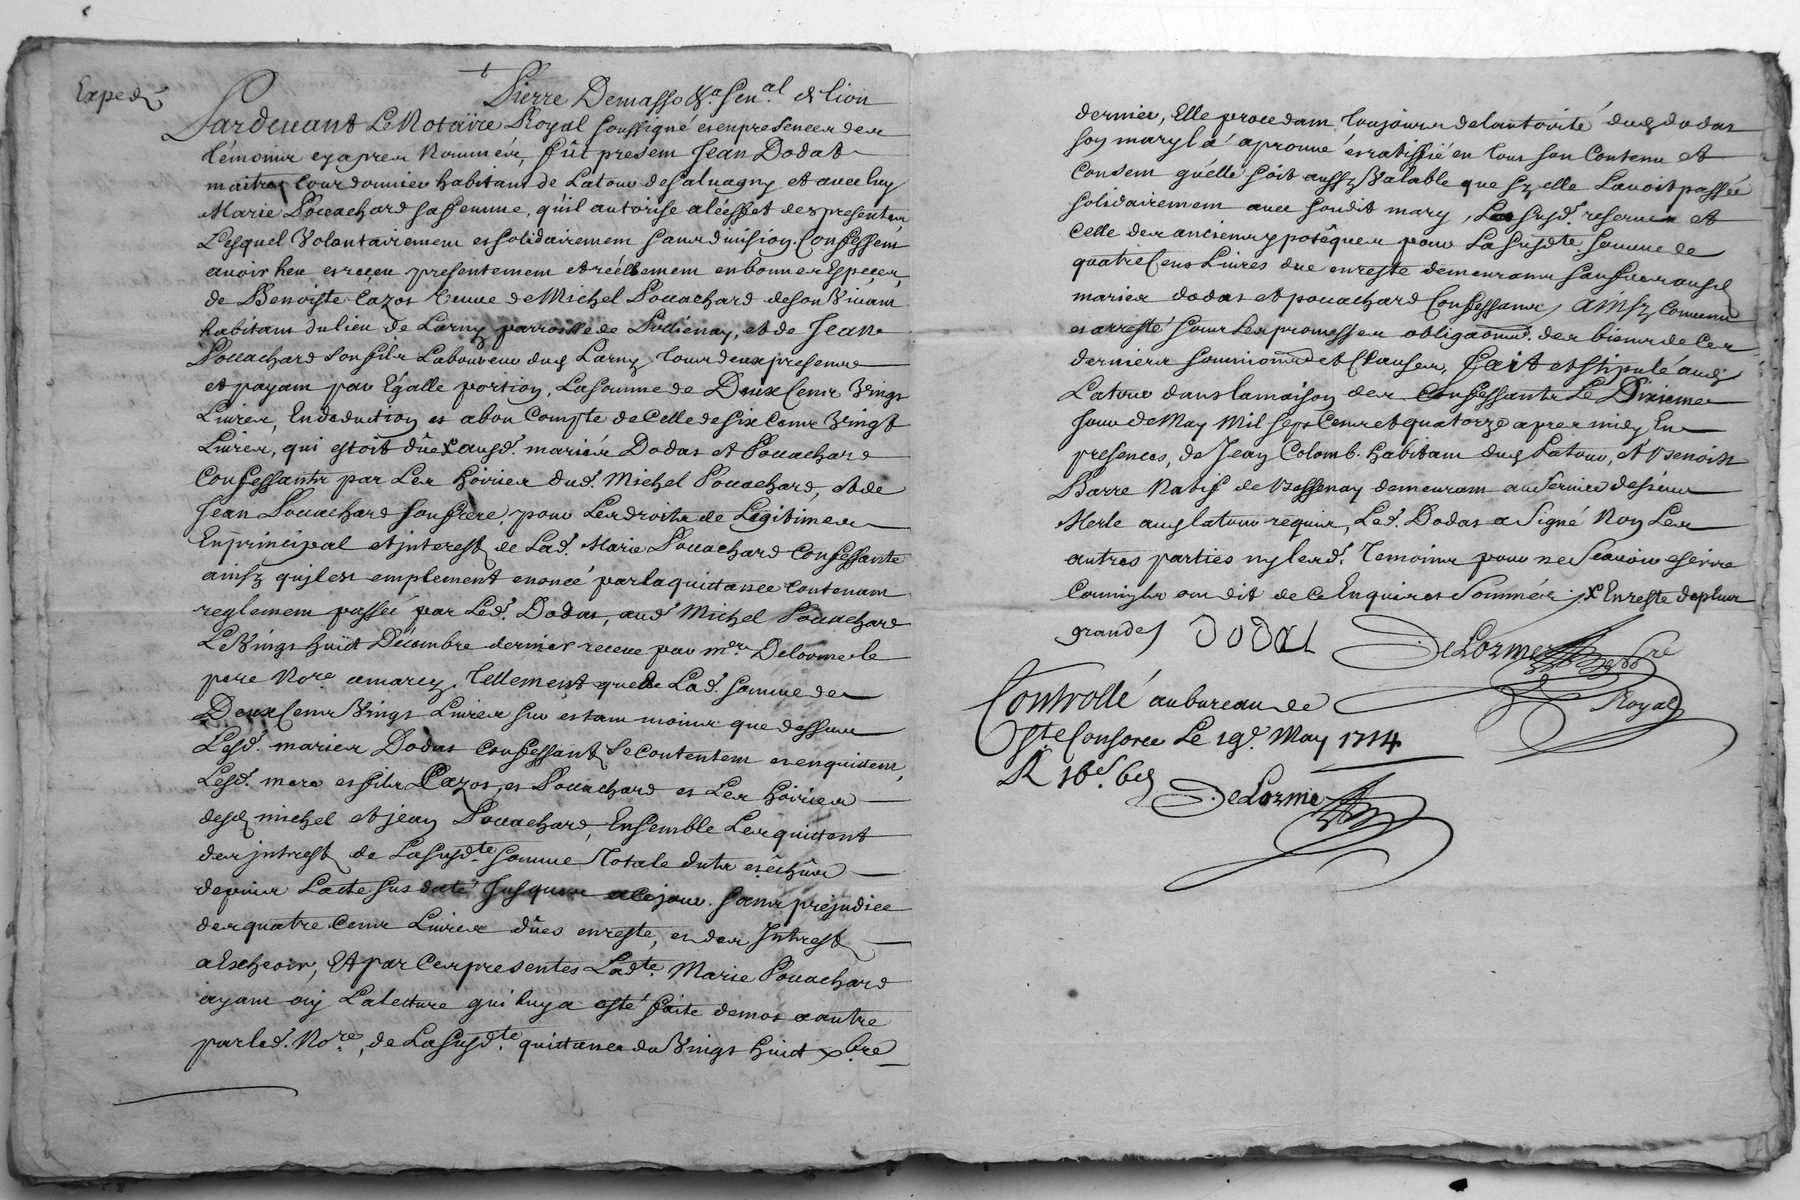 Expedé
Pierre Demasso &a. Sen.al de lion
Pardevant Le Notaire Royal soussigné es en presence des
témoins cy apres Nommés, fût presen Jean Dodat
maitre Courdonnier habitant de Latour de Salvagny et avec luy
Marie Pouachard sa femme, qu'il autorise a léffet des presentes,
Lesquel Volontairement es solidairemen sans division. Confessem
avoir heu es receu presentement et réellement en bonnes Especes,
de Benoiste Cazos veuve de Michel Pouachard de son Vivant
habitant du lieu de Larny parroisse de Pollienay, et de Jean
Pouachard son fils Laboureur dud Larny tous deux presens
et payant par Egalle portion, La somme de Deux Cens Vingt
Livres, En deduction es a bon Compte de Celle de six Cens Vingt
Livres, qui estoit dûe x ausd. mariés Dodat et Pouachard
Confessants par Les hoirier dud. Michel Pouachard, et de
Jean Pouachard son frere, pour Les droits de Legitimes
En principal et interest de Lad. Marie Pouachard Confessante
ainsy qu'il est emplement enoncé par la quittance contenam
reglement passée par Led. Dodat, aud Michel Pouachard
Le Vingt huict Décembre dernier receue par me. Delorme le
pere Nore. a marcy, Tellement que de Lad. somme de
Deux Cens Vingt Livres sur es tam moins que dessus
Lesd. mariés Dodat confessant se contentem es en quittent,
Lesd. mere es fils Cazos, es Pouachard es Les hoirier
desd michel et jean Pouachard, Ensemble Les quittent
des jntrest de La susdte somme Totale duts es êchus
depuis L'acte sus daté Jusques a ce jour. sans prejudice
des quatre cens Livres dûes en reste, es des Jntrest
a Escheoir, Et par Ces presentes Ladte. Marie Pouachard
ayant oüy La lecture qui luy a esté faite de mot a autre
par led. Nore, de La susdte quittance du Vingt huict xbre
dernier, Elle procedam toujours de l'autorité dud dodat
son mary l'a aprouvé es ratiffié en tous son Contenu et
Consem qu'elle soit aussy Valable que sy elle L'avoit passée
solidairement avec sondit mary, Les susd. reserves et
celle des anciens ypotêques pour La susdte. somme de
quatre Cens Livres due en reste demeurans sauf ausd
mariés dodat et pouachard Confessans, ainsy Convenu
es arresté sous Les promesses obligaôns. des biens de Ces
derniers soumiôns et Clauses, fait et stipulé aud
Latour dans la maison des Confessants Le Dixieme
Jour de May Mil sept Cens et quatorze apres midy En
presences, de Jean Colomb. habitam dud Latour, et Benoist
Barre Natif de Bessenay demeuram au Service de sieur
Merle aud latour requis, Led. Dodat a Signé Non Les
autres parties ny lesd. Temoins pour ne Scavoir escrire
Comme ils on dit de Ce Enquis es Sommés. x En reste de plus
grande / Dodat DeLorme Nore
Royal
Controllé au bureau de
Ste Consorce Le 19e. May 1714
R 16s. 6d
DeLorme